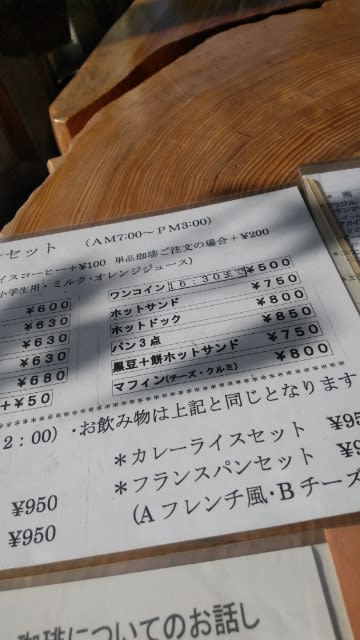 ンセット (AM7:00～PM3:00)
イスコーヒー+¥100 単品珈琲ご注文の場合+¥200
小学生用・ミルク・オレンジジュース)
¥600
¥630
¥630
¥630
¥680
+¥50
ワンコイン 16:30まで ¥500
ホットサンド ¥750
ホットドック ¥800
パン3点 ¥850
黒豆+餅ホットサンド ¥750
マフィン(チーズ・クルミ) ¥800
2:00)・お飲み物は上記と同じとなります
＊カレーライスセット ¥95
¥950 ＊フランスパンセット
¥950 (Aフレンチ風・Bチーズ
珈琲についてのお話し